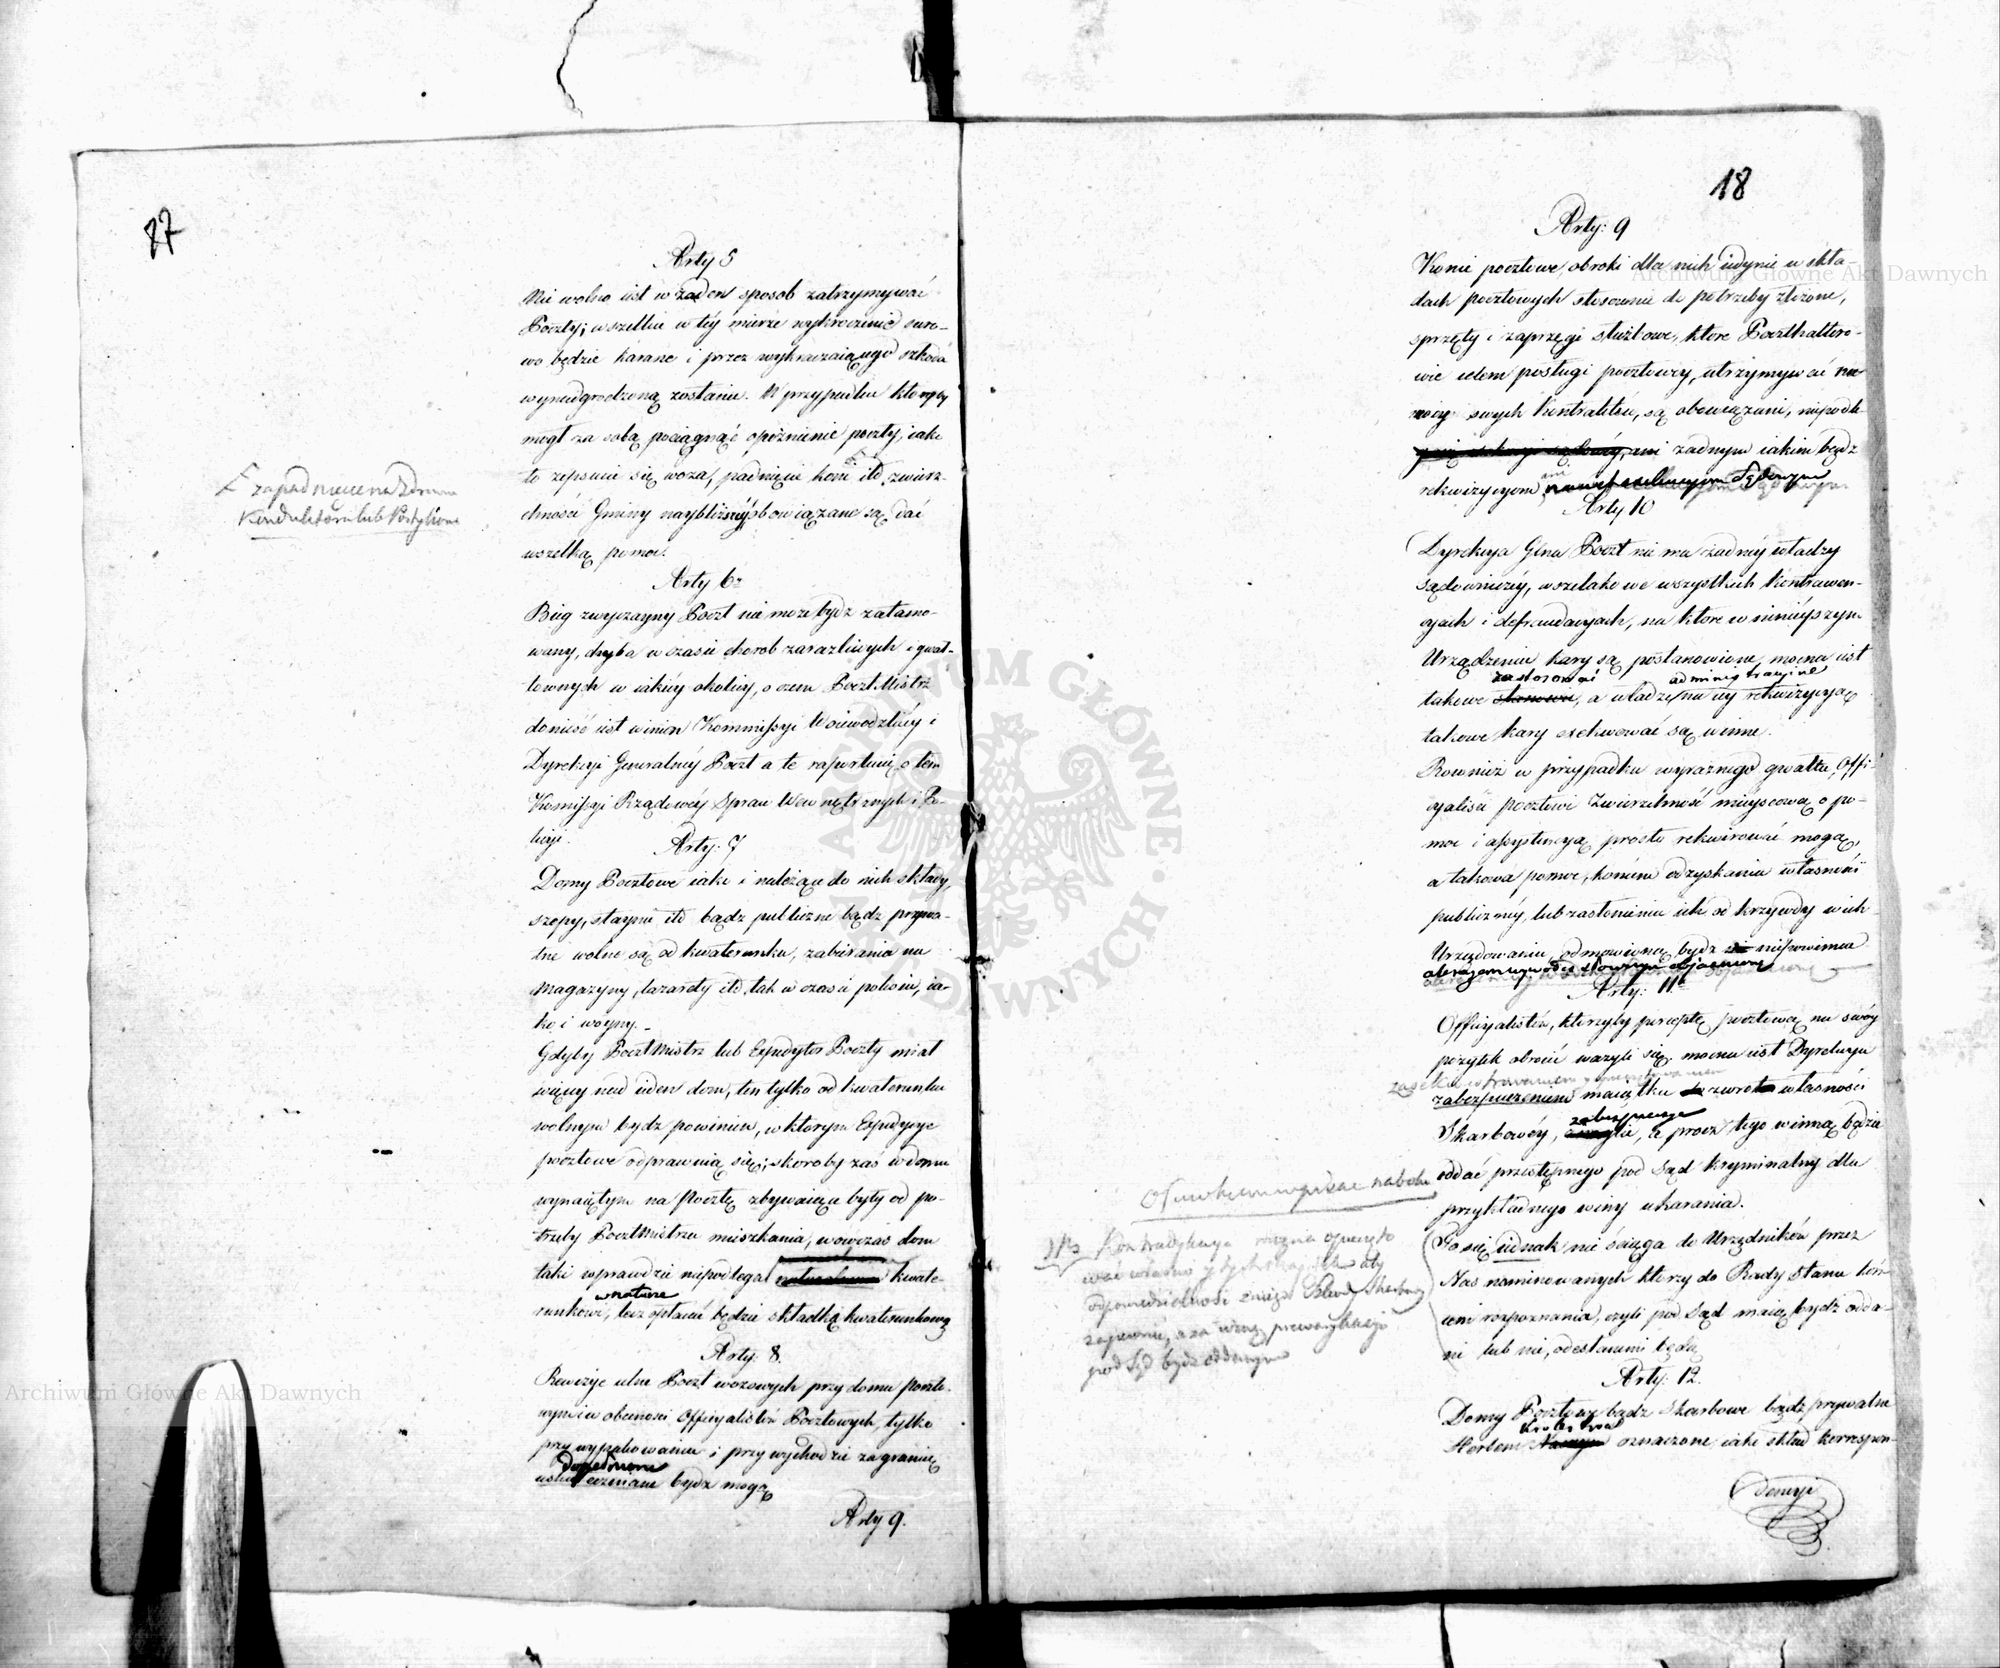 77
Arty 5
Nie wolno iest w żaden sposob zatrzymywać
Poczty; wszelkie w tey mierze wykroczenie suro-
wo będzie karane i przez wykraczaiącego szkoda
wynadgrodzoną zostanie. W przypadku ktoryby
mogł za sobą pociągnąć opoźnienie poczty, iako
to zepsucie się woza, padnięcie koni itd, zwierz-
chność Gminy naybliższey obowiązane są dać
wszelką pomoc.
zapadniecie na Zdrowiu
Konduktora lub Postyliona
Arty 6
Bieg zwyczayny Poczt nie może bydz zatamo-
wany, chyba w czasie chorob zarazliwych i gwał-
townych w iakiey okolicy, o czem PocztMistrz
donieść iest winien Kommissyi Woiewodzkiey i
Dyrekcyi Generalney Poczt a te raportuią o tem
Komissyi Rządowey Spraw Wewnętrznych i Po-
licyi.
Arty: 7
Domy Pocztowe iako i należące do nich składy,
szopy, staynie itd bądz publiczne bądz prywa-
tne wolne są od kwaterunku, zabierania na
magazyny, lazarety itd, tak w czasie pokoiu, ia-
ko i woyny.
Gdyby PocztMistrz lub Expedytor Poczty miał
więcey nad ieden dom, ten tylko od kwaterunku
wolnym bydz powinien, w ktorym Expedycye
pocztowe odprawuią się; skoroby zaś w domu
wynaiętym na Pocztę zbywaiące były od po-
trzeby PocztMistrza mieszkania, wowczas dom
taki wprawdzie niepodlegał kwate-
w naturze
runkowi, lecz opłacać będzie składkę kwaterunkową
Arty: 8.
Rewizye celne Poczt wozowych przy domu poczto-
wym i w obecności Officyalistów Pocztowych, tylko
przy wypakowaniu i przy wychodzie za granicę
dopełnione
uskutecznione bydz mogą
Arty 9.
18
Arty: 9
Konie pocztowe, obroki dla nich iedynie w skła-
dach pocztowych stosownie do potrzeby złożone,
sprzęty i zaprzęgi służbowe, ktore Poczthaltero-
wie celem posługi pocztowey, utrzymywać na
mocy swych Kontraktów, są obowiązani, niepodle-
żadnym iakim bądz
rekwizycyom
Arty 10
Dyrekcya Glna Poczt nie ma żadney władzy
sądowniczey, wszelako we wszystkich kontrawen-
cyach i defraudacyach, na ktore w ninieyszym
Urządzeniu kary są postanowione, mocna iest
zastosować administracyine
takowe stanowić, a władze na iey rekwizycyą
takowe kary exekwować są winne.
Rownież w przypadku wyraznego gwałtu, Offi-
cyaliści pocztowi Zwierzchność mieyscową o po-
moc i assystencyą prosto rekwirować mogą,
a takowa pomoc, koniecu odzyskania własności
publiczney, lub zasłonienia ich od krzywdy w ich
Urzędowaniu, odmowioną bydz niepowinna
Arty: 11
Officyalistów, ktorzyby perceptę pocztową na swoy
pożytek obrocić ważyli się; mocna iest Dyrekcya
zabezpieczeniem maiątku zwrot własności
zabezpieczy
Skarbowey, a procz tego winna będzie
oddać przestępnego pod Sąd kryminalny dla
przykładnego winy ukarania.
To się iednak nie ściąga do Urzędników przez
Nas nominowanych ktorzy do Rady Stanu koń-
cem rozpoznania, czyli pod Sąd maią bydz odda-
ni lub nie, odesłanemi będą
pod Sąd bydz oddanym
Arty: 12.
Domy Pocztowe bądz Skarbowe bądz prywatne
Krolestwa
Herbem Naszym oznaczone, iako skład korrespon-
dencyi
Archiwum Główne Akt Dawnych
Archiwum Główne Akt Dawnych
ARCHIWUM GŁÓWNE AKT DAWNYCH